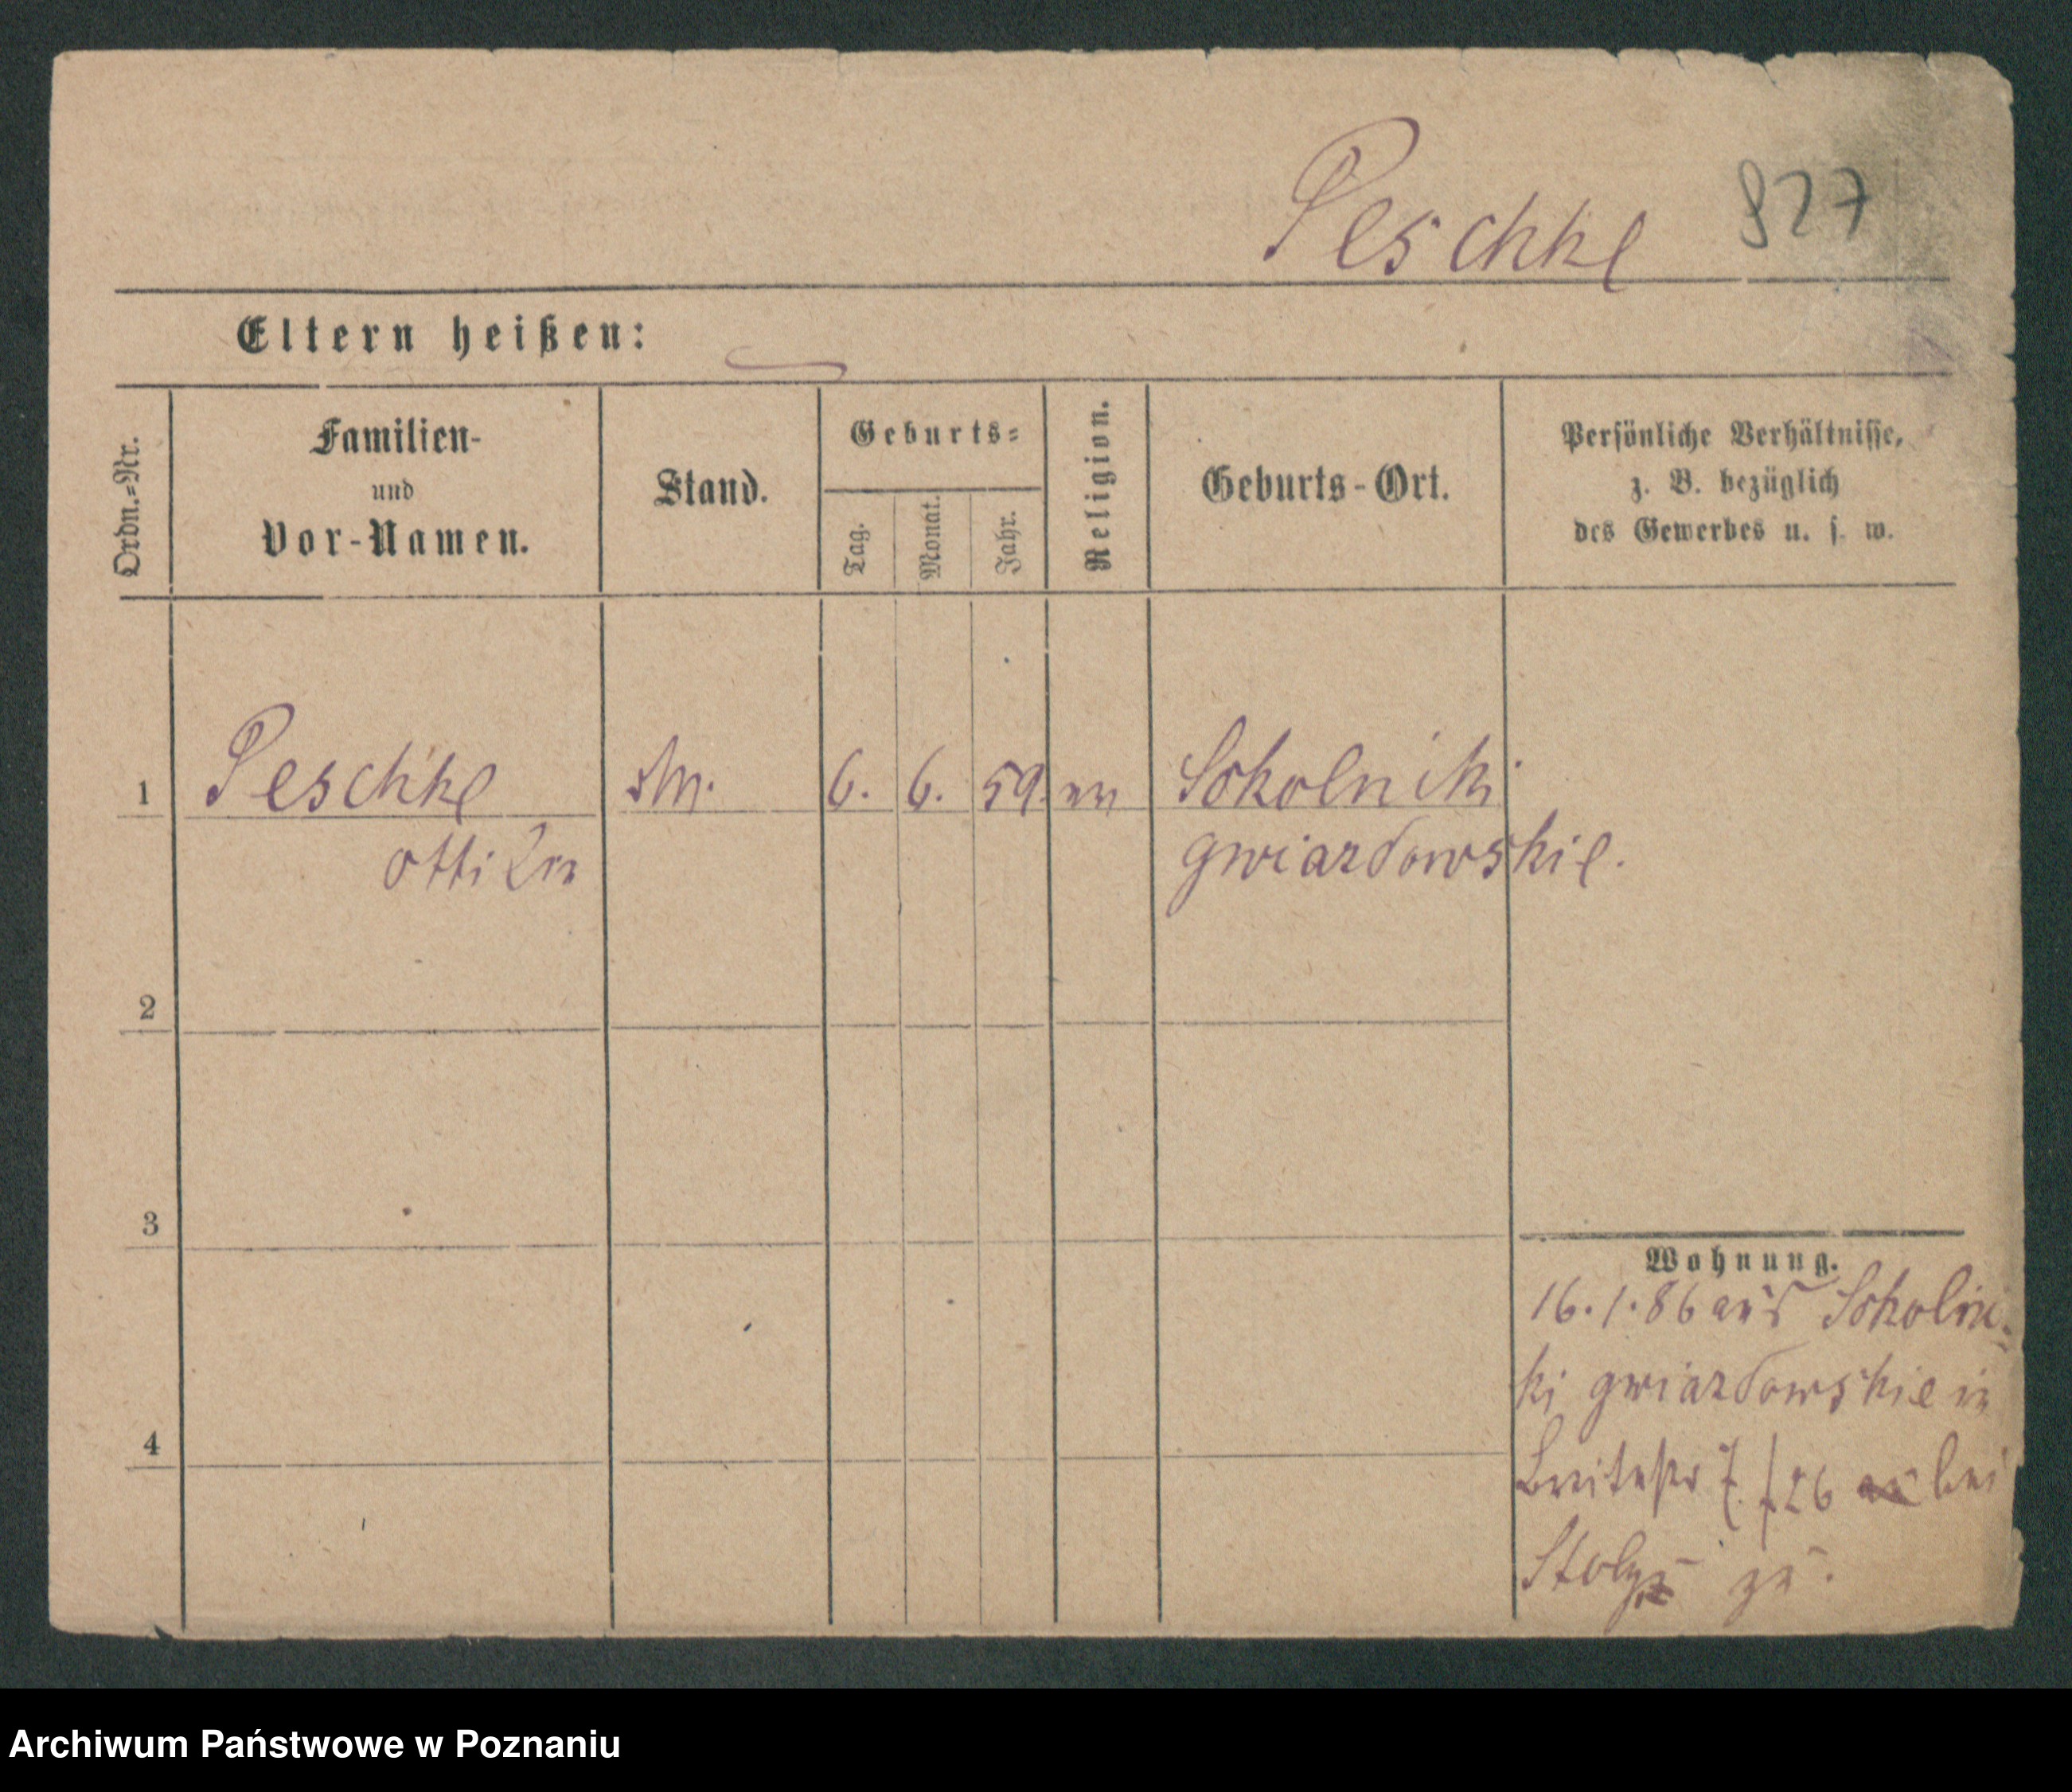 Peschke 827
Eltern heißen:
Ordn.=Nr.
Familien-
und
Vor-Namen.
Stand.
Geburts=
Tag.
Monat.
Jahr.
Religion.
Geburts-Ort.
Persönliche Verhältnisse,
z. B. bezüglich
des Gewerbes u. s. w.
1 Peschke 6. 6. 59. Sokolniki
gwiazdowskie.
2
3
4
Wohnung.
16.1.86 aus Sokolni-
ki gwiazdowskie in
bei
zu.
Archiwum Państwowe w Poznaniu